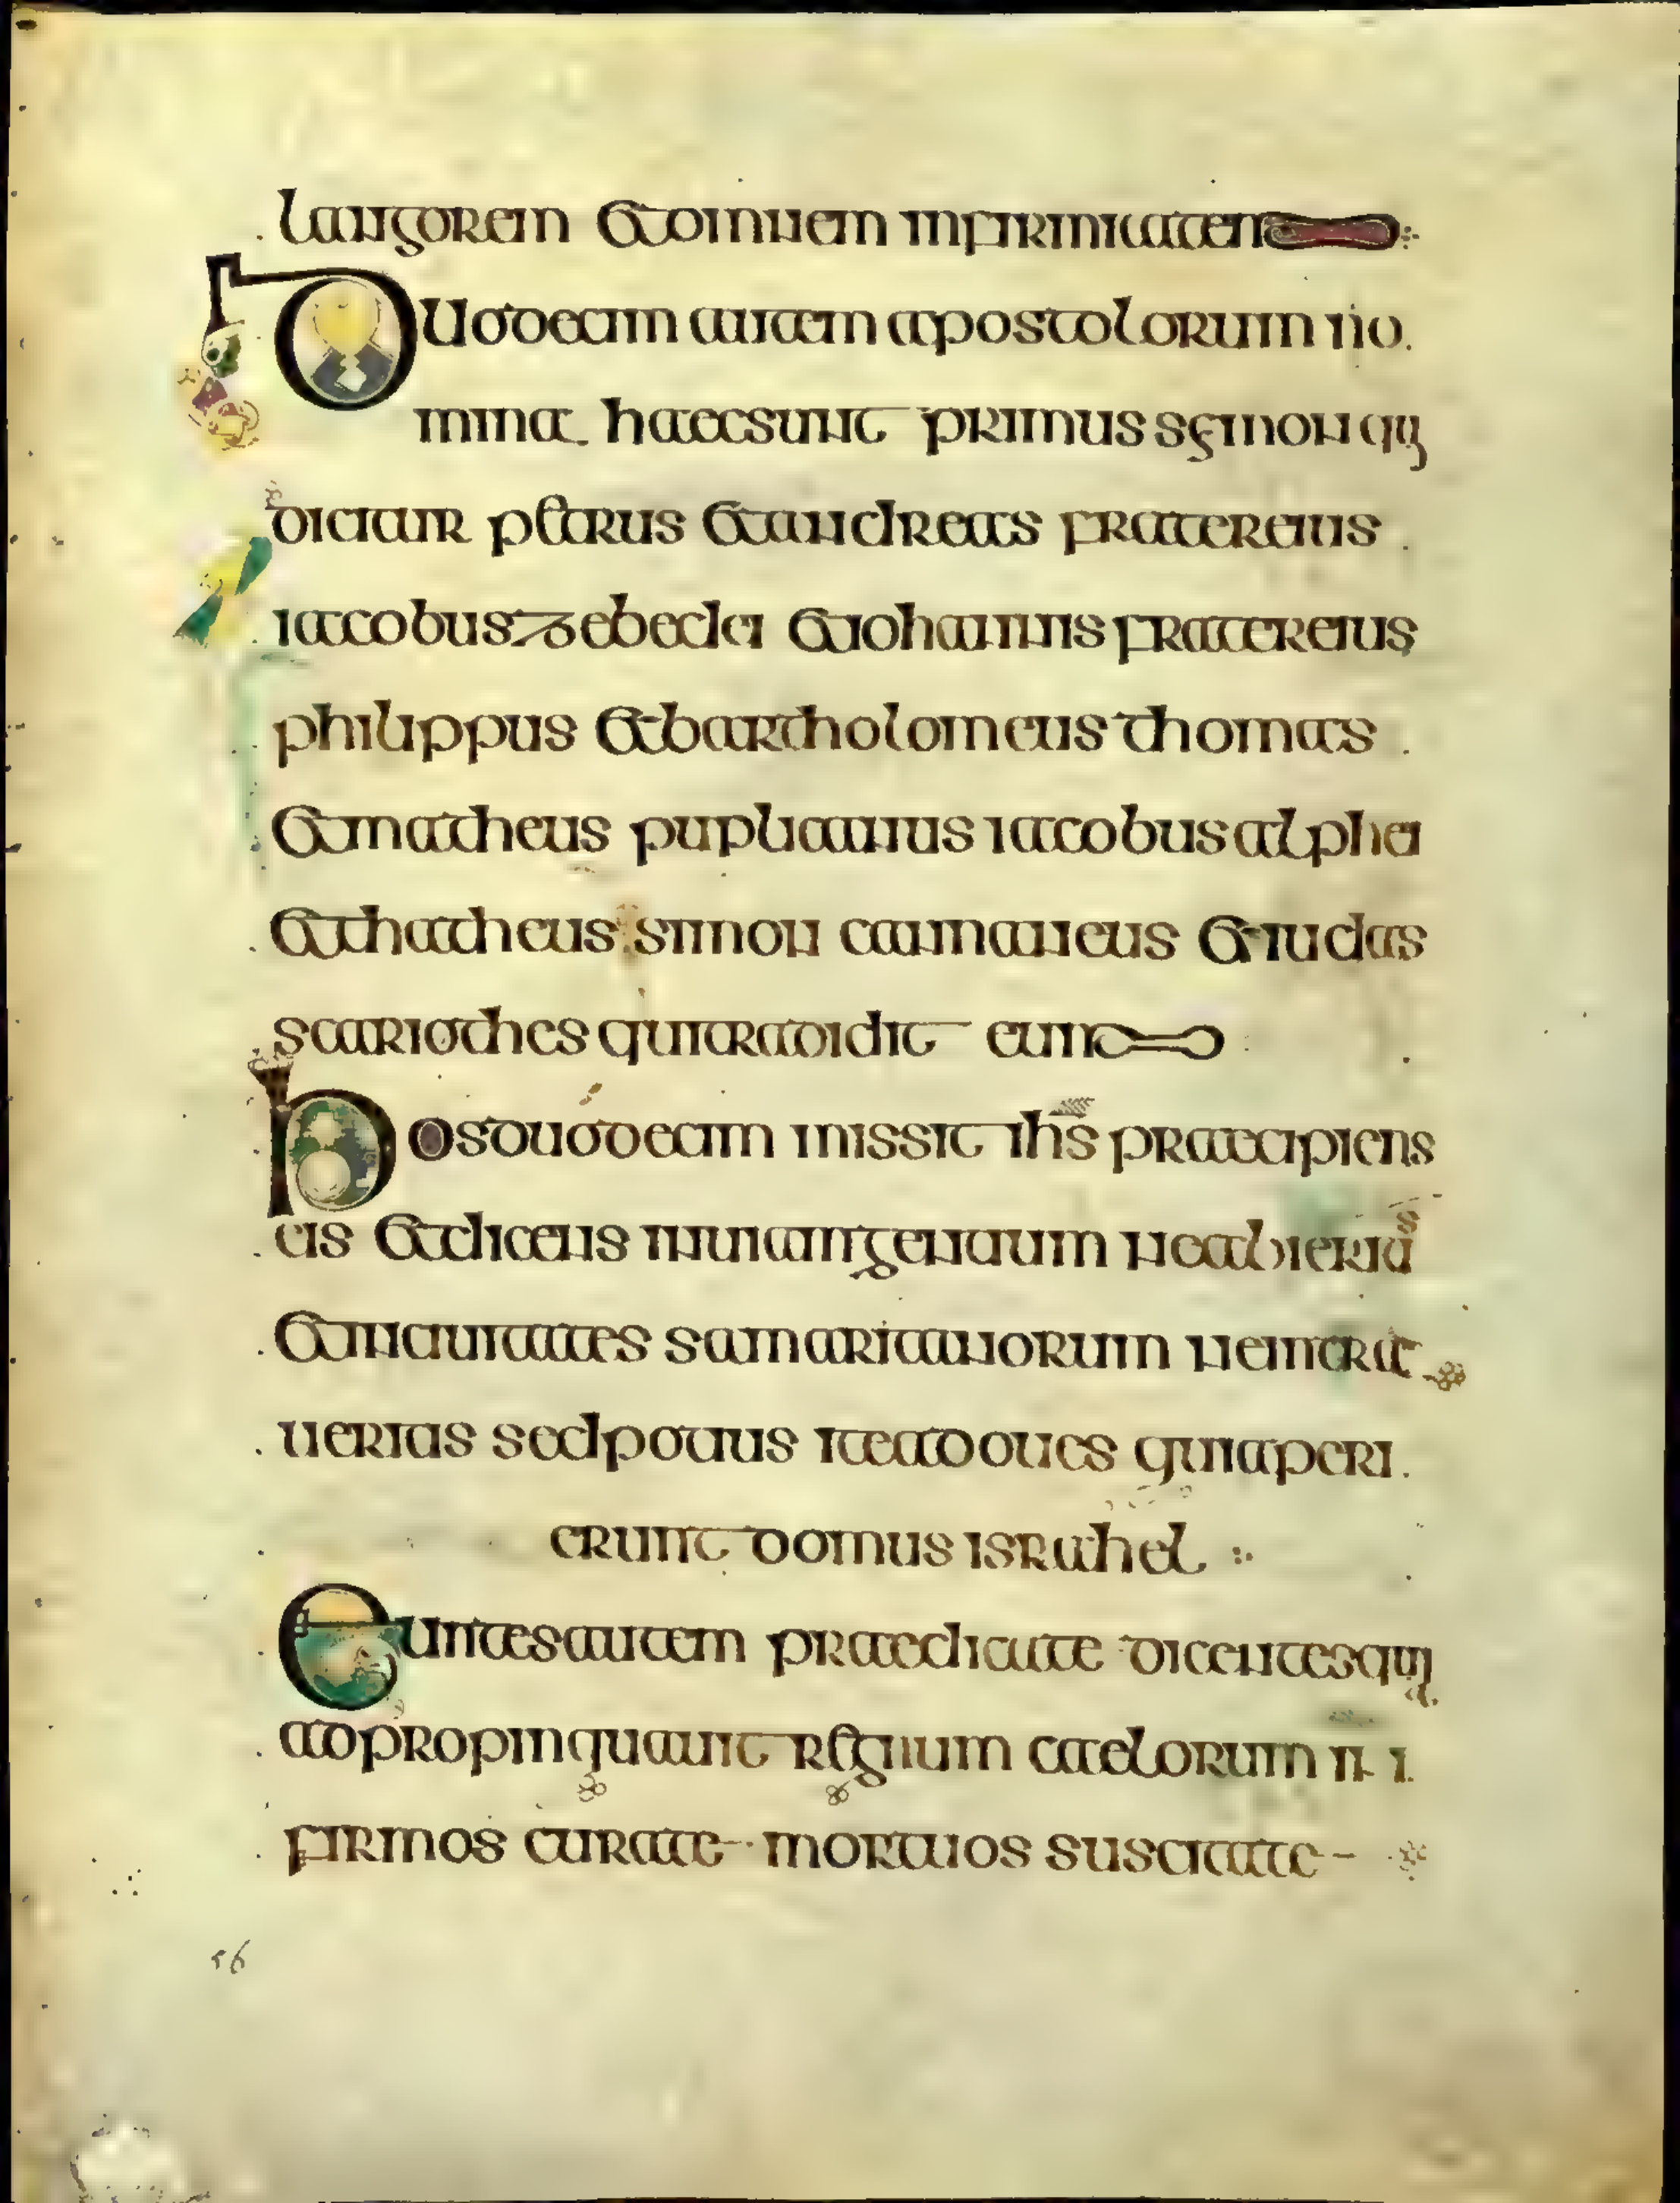 langorem et omnem infirmitatem
Duodecim autem apostolorum no
mina haec sunt primus symon qui
dicitur petrus et andreas frater eius
iacobus zebedei et iohannis frater eius
philippus et bartholomeus thomas
et matheus puplicanus iacobus alphei
et thatheus simon cannaneus et iudas
scariothes qui tradidit eum
hos duodecim missit ihs praecipiens
eis et dicens in uiam gentium ne abieritis
et in ciuitates samaritanorum ne intra
ueritis sed potius ite ad oues qui aperi
erunt domus israhel
Euntes autem praedicate dicentes qui
adpropinquauit regnum caelorum in
firmos curate mortuos suscitate
56